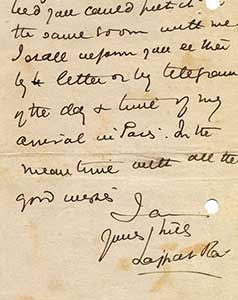 you could put it
the same room with me
I shall inform you either
by letter or by telegram
of the day & time of my
arrival in Paris. In the
mean time with all the
good wishes
I am
Yours
Lajpat Rai